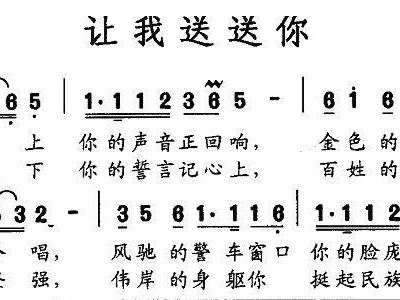 让我送送你
6 5 | 1·1 1 2 3 6 5 - | 6 i 6
上 你的声音正回响, 金色的
下 你的誓言记心上, 百姓的
3 2 - | 3 5 6 1·1 6 1 2 6 | 1·1 1 2
唱, 风驰的警车窗口 你的脸庞
强, 伟岸的身躯你 挺起民族